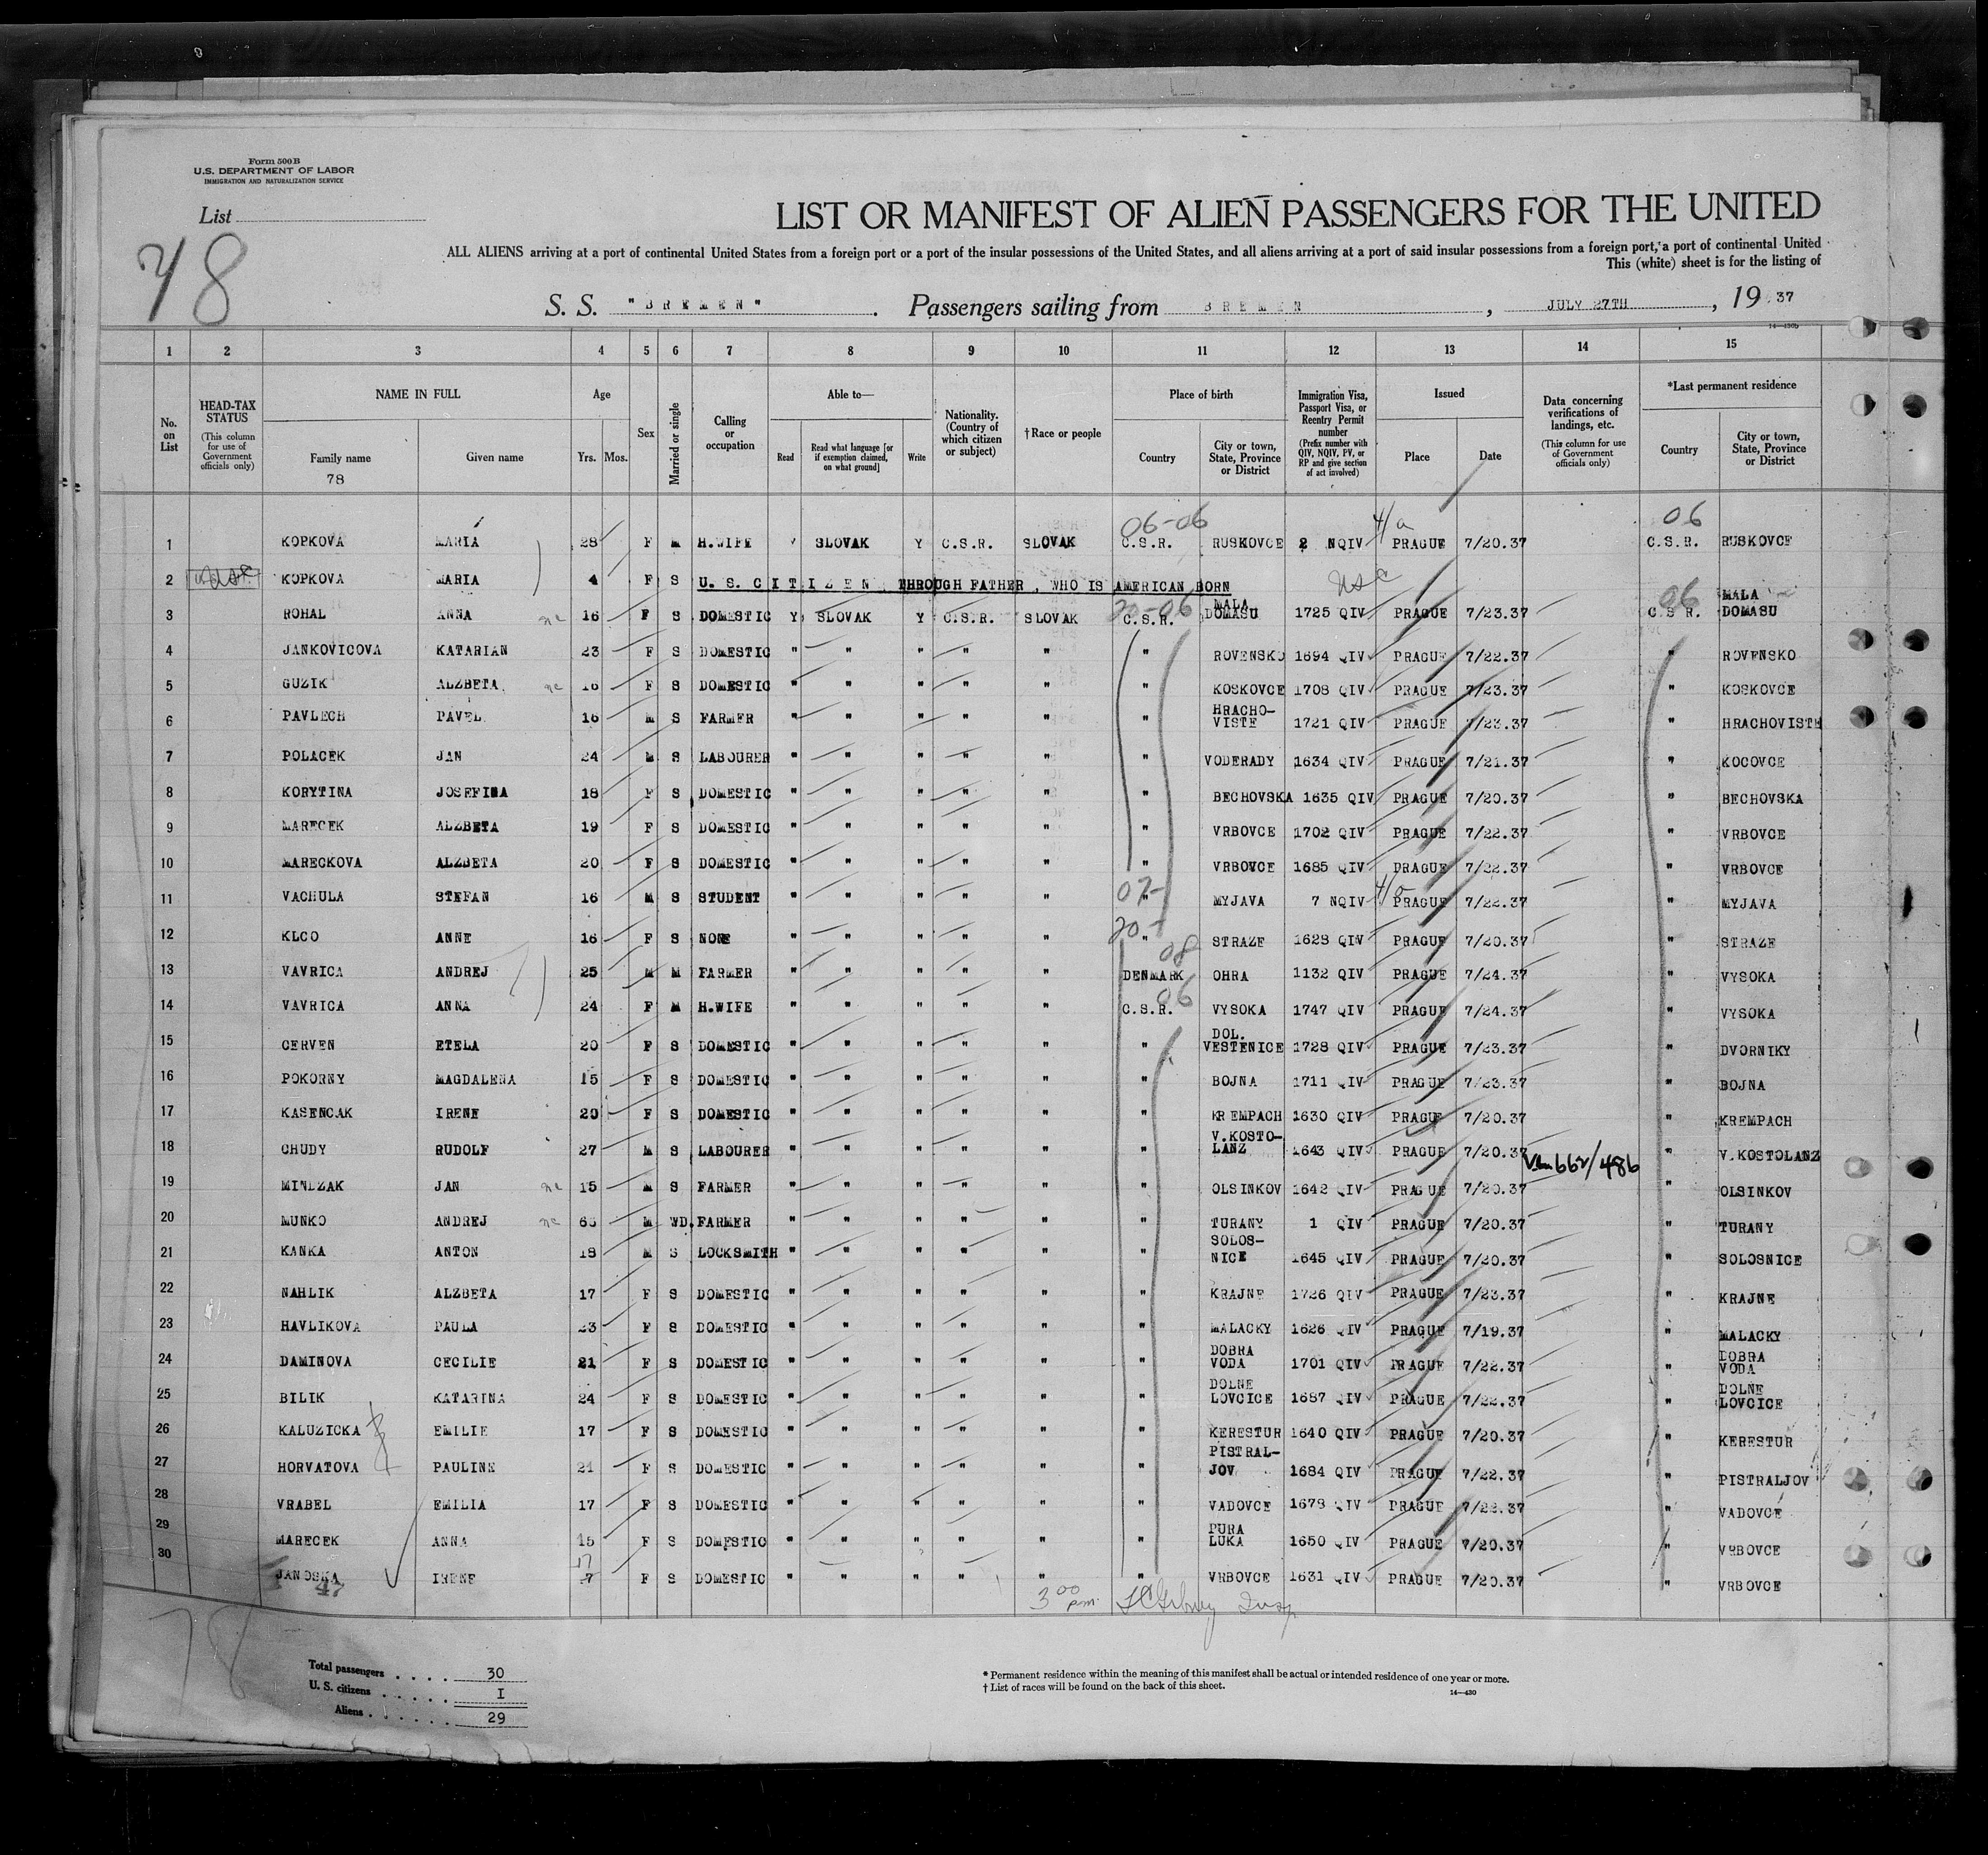 Form 500B
U.S. DEPARTMENT OF LABOR
IMMIGRATION AND NATURALIZATION SERVICE
List
78
LIST OR MANIFEST OF ALIEN PASSENGERS FOR THE UNITED
ALL ALIENS arriving at a port of continental United States from a foreign port or a port of the insular possessions of the United States, and all aliens arriving at a port of said insular possessions from a foreign port, a port of continental United
This (white) sheet is for the listing of
S. S. "BREMEN". Passengers sailing from BREMEN, JULY 27TH, 1937
14—430b
1 2 3 4 5 6 7 8 9 10 11 12 13 14 15
No. on List
HEAD-TAX STATUS (This column for use of Government officials only)
NAME IN FULL Family name Given name
78
Age Yrs. Mos.
Sex
Married or single
Calling or occupation
Able to— Read Read what language [or if exemption claimed, on what ground] Write
Nationality. (Country of which citizen or subject)
†Race or people
Place of birth Country City or town, State, Province or District
Immigration Visa, Passport Visa, or Reentry Permit number (Prefix number with QIV, NQIV, PV, or RP and give section of act involved)
Issued Place Date
Data concerning verifications of landings, etc. (This column for use of Government officials only)
*Last permanent residence Country City or town, State, Province or District
06-06 4/a 06
1 KOPKOVA MARIA 28 F M H.WIFE Y SLOVAK Y C.S.R. SLOVAK C.S.R. RUSKOVCE 2 NQIV PRAGUE 7/20.37 C.S.R. RUSKOVCE
2 USC KOPKOVA MARIA 4 F S U. S. CITIZEN THROUGH FATHER, WHO IS AMERICAN BORN USC
20-06 06
3 ROHAL ANNA nc 16 F S DOMESTIC Y SLOVAK Y C.S.R. SLOVAK C.S.R. MALA DOMASU 1725 QIV PRAGUE 7/23.37 C.S.R. MALA DOMASU
4 JANKOVICOVA KATARIAN 23 F S DOMESTIC " " " " " " ROVENSKO 1694 QIV PRAGUE 7/22.37 " ROVENSKO
5 GUZIK ALZBETA nc 16 F S DOMESTIC " " " " " " KOSKOVCE 1708 QIV PRAGUE 7/23.37 " KOSKOVCE
6 PAVLECH PAVEL 16 M S FARMER " " " " " " HRACHO-VISTE 1721 QIV PRAGUE 7/23.37 " HRACHOVISTE
7 POLACEK JAN 24 M S LABOURER " " " " " " VODERADY 1634 QIV PRAGUE 7/21.37 " KOCOVCE
8 KORYTINA JOSEFINA 18 F S DOMESTIC " " " " " " BECHOVSKA 1635 QIV PRAGUE 7/20.37 " BECHOVSKA
9 MARECEK ALZBETA 19 F S DOMESTIC " " " " " " VRBOVCE 1702 QIV PRAGUE 7/22.37 " VRBOVCE
10 MARECKOVA ALZBETA 20 F S DOMESTIC " " " " " " VRBOVCE 1685 QIV PRAGUE 7/22.37 " VRBOVCE
07- 4/a
11 VACHULA STEFAN 16 M S STUDENT " " " " " " MYJAVA 7 NQIV PRAGUE 7/22.37 " MYJAVA
20-
12 KLCO ANNE 16 F S NONE " " " " " " STRAZE 1628 QIV PRAGUE 7/20.37 " STRAZE
08
13 VAVRICA ANDREJ 25 M M FARMER " " " " " DENMARK OHRA 1132 QIV PRAGUE 7/24.37 " VYSOKA
06
14 VAVRICA ANNA 24 F M H.WIFE " " " " " C.S.R. VYSOKA 1747 QIV PRAGUE 7/24.37 " VYSOKA
15 CERVEN ETELA 20 F S DOMESTIC " " " " " " DOL. VESTENICE 1728 QIV PRAGUE 7/23.37 " DVORNIKY
16 POKORNY MAGDALENA 15 F S DOMESTIC " " " " " " BOJNA 1711 QIV PRAGUE 7/23.37 " BOJNA
17 KASENCAK IRENE 20 F S DOMESTIC " " " " " " KREMPACH 1630 QIV PRAGUE 7/20.37 " KREMPACH
18 CHUDY RUDOLF 27 M S LABOURER " " " " " " V.KOSTO-LANZ 1643 QIV PRAGUE 7/20.37 662/486 " V.KOSTOLANZ
19 MINDZAK JAN nc 15 M S FARMER " " " " " " OLSINKOV 1642 QIV PRAGUE 7/20.37 " OLSINKOV
20 MUNKO ANDREJ nc 65 M WD. FARMER " " " " " " TURANY 1 QIV PRAGUE 7/20.37 " TURANY
21 KANKA ANTON 18 M S LOCKSMITH " " " " " " SOLOS-NICE 1645 QIV PRAGUE 7/20.37 " SOLOSNICE
22 NAHLIK ALZBETA 17 F S DOMESTIC " " " " " " KRAJNE 1726 QIV PRAGUE 7/23.37 " KRAJNE
23 HAVLIKOVA PAULA 23 F S DOMESTIC " " " " " " MALACKY 1626 QIV PRAGUE 7/19.37 " MALACKY
24 DAMINOVA CECILIE 21 F S DOMESTIC " " " " " " DOBRA VODA 1701 QIV PRAGUE 7/22.37 " DOBRA VODA
25 BILIK KATARINA 24 F S DOMESTIC " " " " " " DOLNE LOVCICE 1687 QIV PRAGUE 7/22.37 " DOLNE LOVCICE
26 KALUZICKA EMILIE 17 F S DOMESTIC " " " " " " KERESTUR 1640 QIV PRAGUE 7/20.37 " KERESTUR
27 HORVATOVA PAULINE 21 F S DOMESTIC " " " " " " PISTRAL-JOV 1684 QIV PRAGUE 7/22.37 " PISTRALJOV
28 VRABEL EMILIA 17 F S DOMESTIC " " " " " " VADOVCE 1678 QIV PRAGUE 7/22.37 " VADOVCE
29 MARECEK ANNA 15 F S DOMESTIC " " " " " " PURA LUKA 1650 QIV PRAGUE 7/20.37 " VRBOVCE
17
30 JANOSKA IRENE F S DOMESTIC " " " " " " VRBOVCE 1631 QIV PRAGUE 7/20.37 " VRBOVCE
47 3 00 p.m. Insp
78
Total passengers . . . . 30
U. S. citizens . . . . . I
Aliens . . . . . . 29
* Permanent residence within the meaning of this manifest shall be actual or intended residence of one year or more.
† List of races will be found on the back of this sheet.
14—430